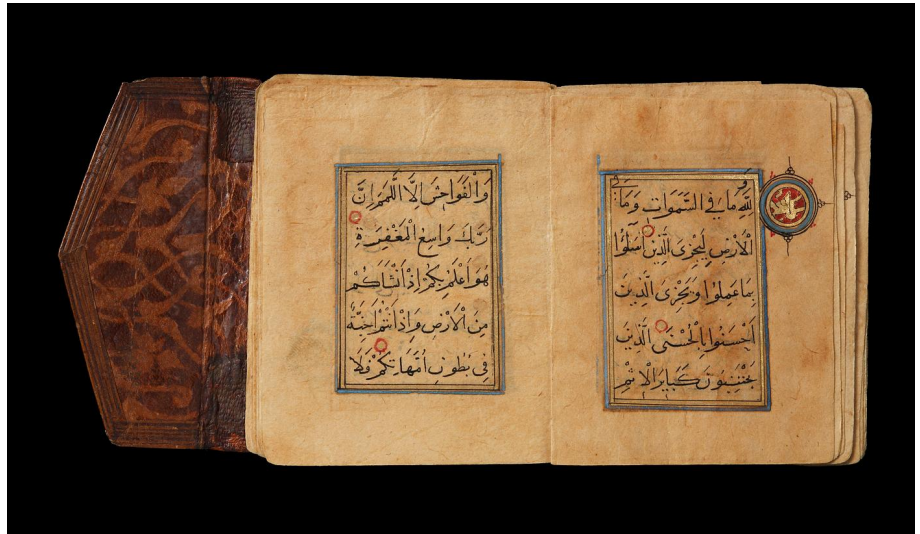 وَلِلَّهِ مَا فِي السَّمَوَاتِ وَمَا فِي
الْأَرْضِ لِيَجْزِىَ الَّذِينَ أَسَٰٓـُٔوا
بِمَا عَمِلُوا وَيَجْزِىَ الَّذِينَ
أَحْسَنُوا بِالْحُسْنَى الَّذِينَ
يَجْتَنِبُونَ كَبَايِرَ الْاِثْمِ
وَالْفَوَاحِشَ اِلَّا اللَّمَمَ اِنَّ
رَبَّكَ وَاسِعُ الْمَغْفِرَةِ
هُوَ اَعْلَمُ بِكُمْ اِذْ اَنْشَاَكُمْ
مِنَ الْاَرْضِ وَاِذْ اَنْتُمْ اَجِنَّةٌ
فِي بُطُونِ اُمَّهَاتِكُمْ فَلَا